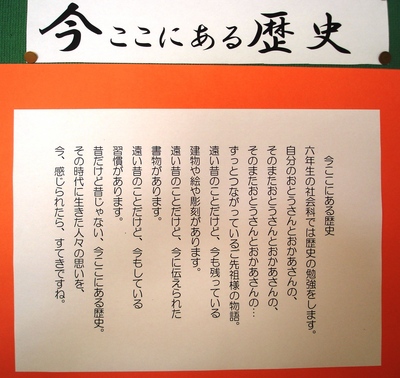 今ここにある歴史
今ここにある歴史
六年生の社会科では歴史の勉強をします。
自分のおとうさんとおかあさんの、
そのまたおとうさんとおかあさんの、
そのまたおとうさんとおかあさんの…
ずっとつながっているご先祖様の物語。
遠い昔のことだけど、今も残っている
建物や絵や彫刻があります。
遠い昔のことだけど、今に伝えられた
書物があります。
遠い昔のことだけど、今もしている
習慣があります。
昔だけど昔じゃない、今ここにある歴史。
その時代に生きた人々の思いを、
今、感じられたら、すてきですね。